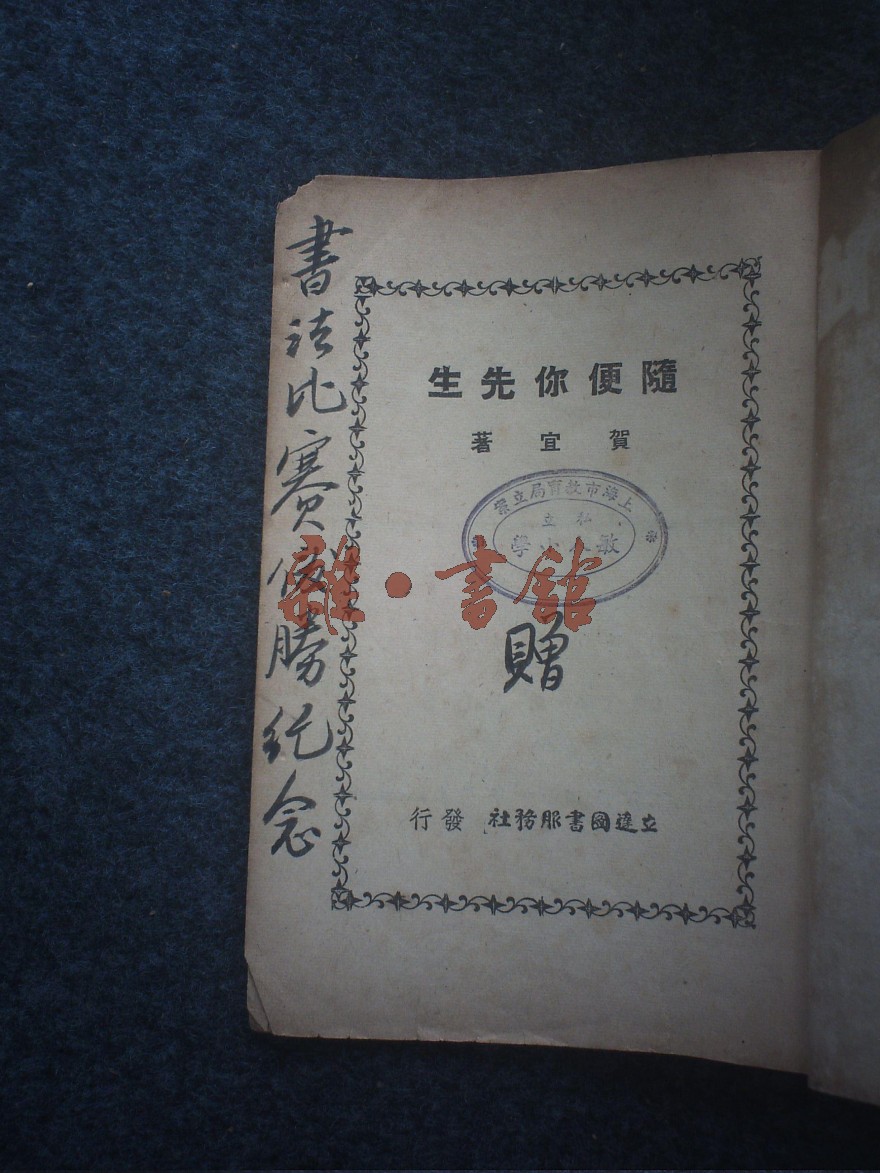 隨便你先生
賀宜著
上海市教育局立案
私立
小學
贈
立達圖書服務社 發行
書法比賽優勝紀念
雜·書館